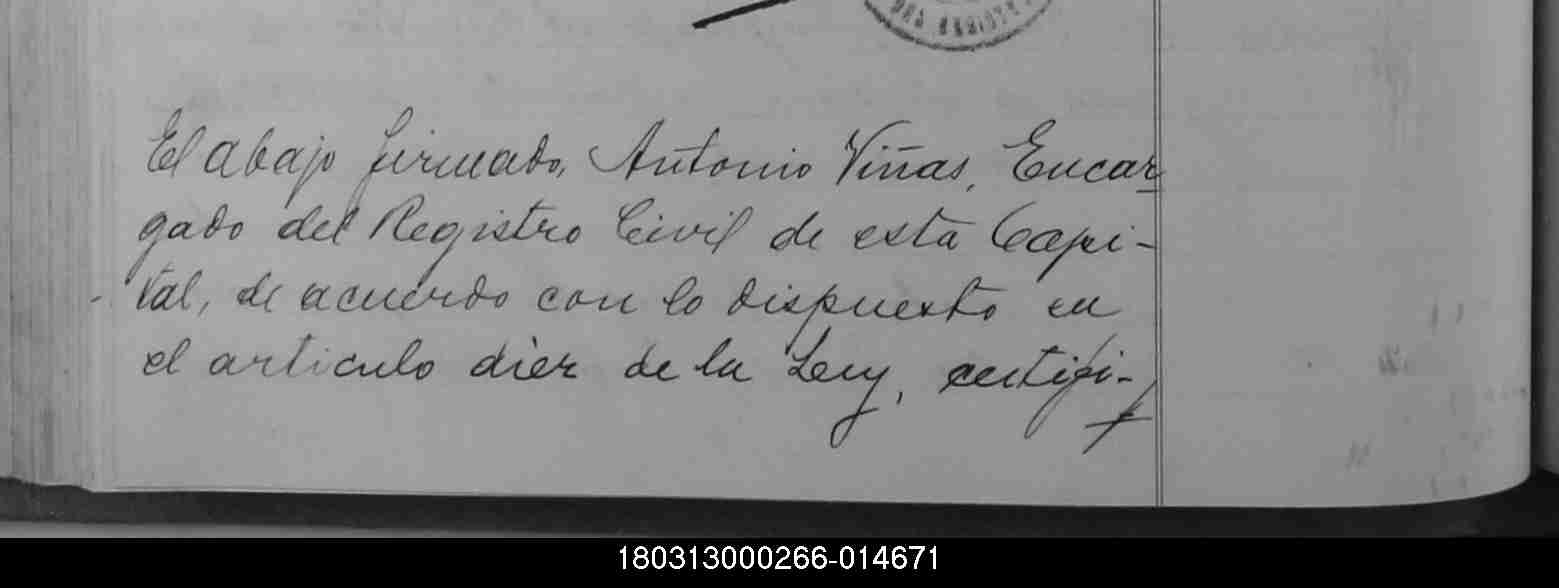 El abajo firmado, Antonio Viñas, Encar-
gado del Registro Civil de esta Capi-
tal, de acuerdo con lo dispuesto en
el articulo diez de la Ley, certifi-
180313000266-014671